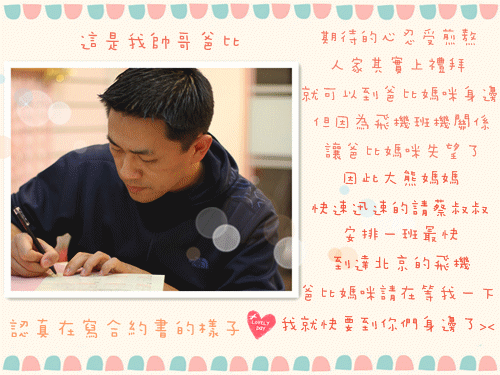 這是我帥哥爸比
期待的心忍受煎熬
人家其實上禮拜
就可以到爸比媽咪身邊
但因為飛機班機關係
讓爸比媽咪失望了
因此大熊媽媽
快速迅速的請蔡叔叔
安排一班最快
到達北京的飛機
爸比媽咪請在等我一下
我就快要到你們身邊了><
認真在寫合約書的樣子
LOVELY
DAY